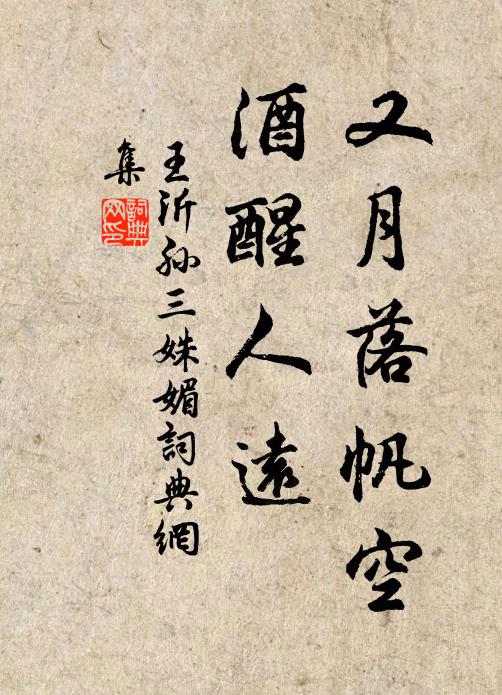 又月落帆空
酒醒人遠
王沂孙三姝媚詞典網
集
詞典
网印